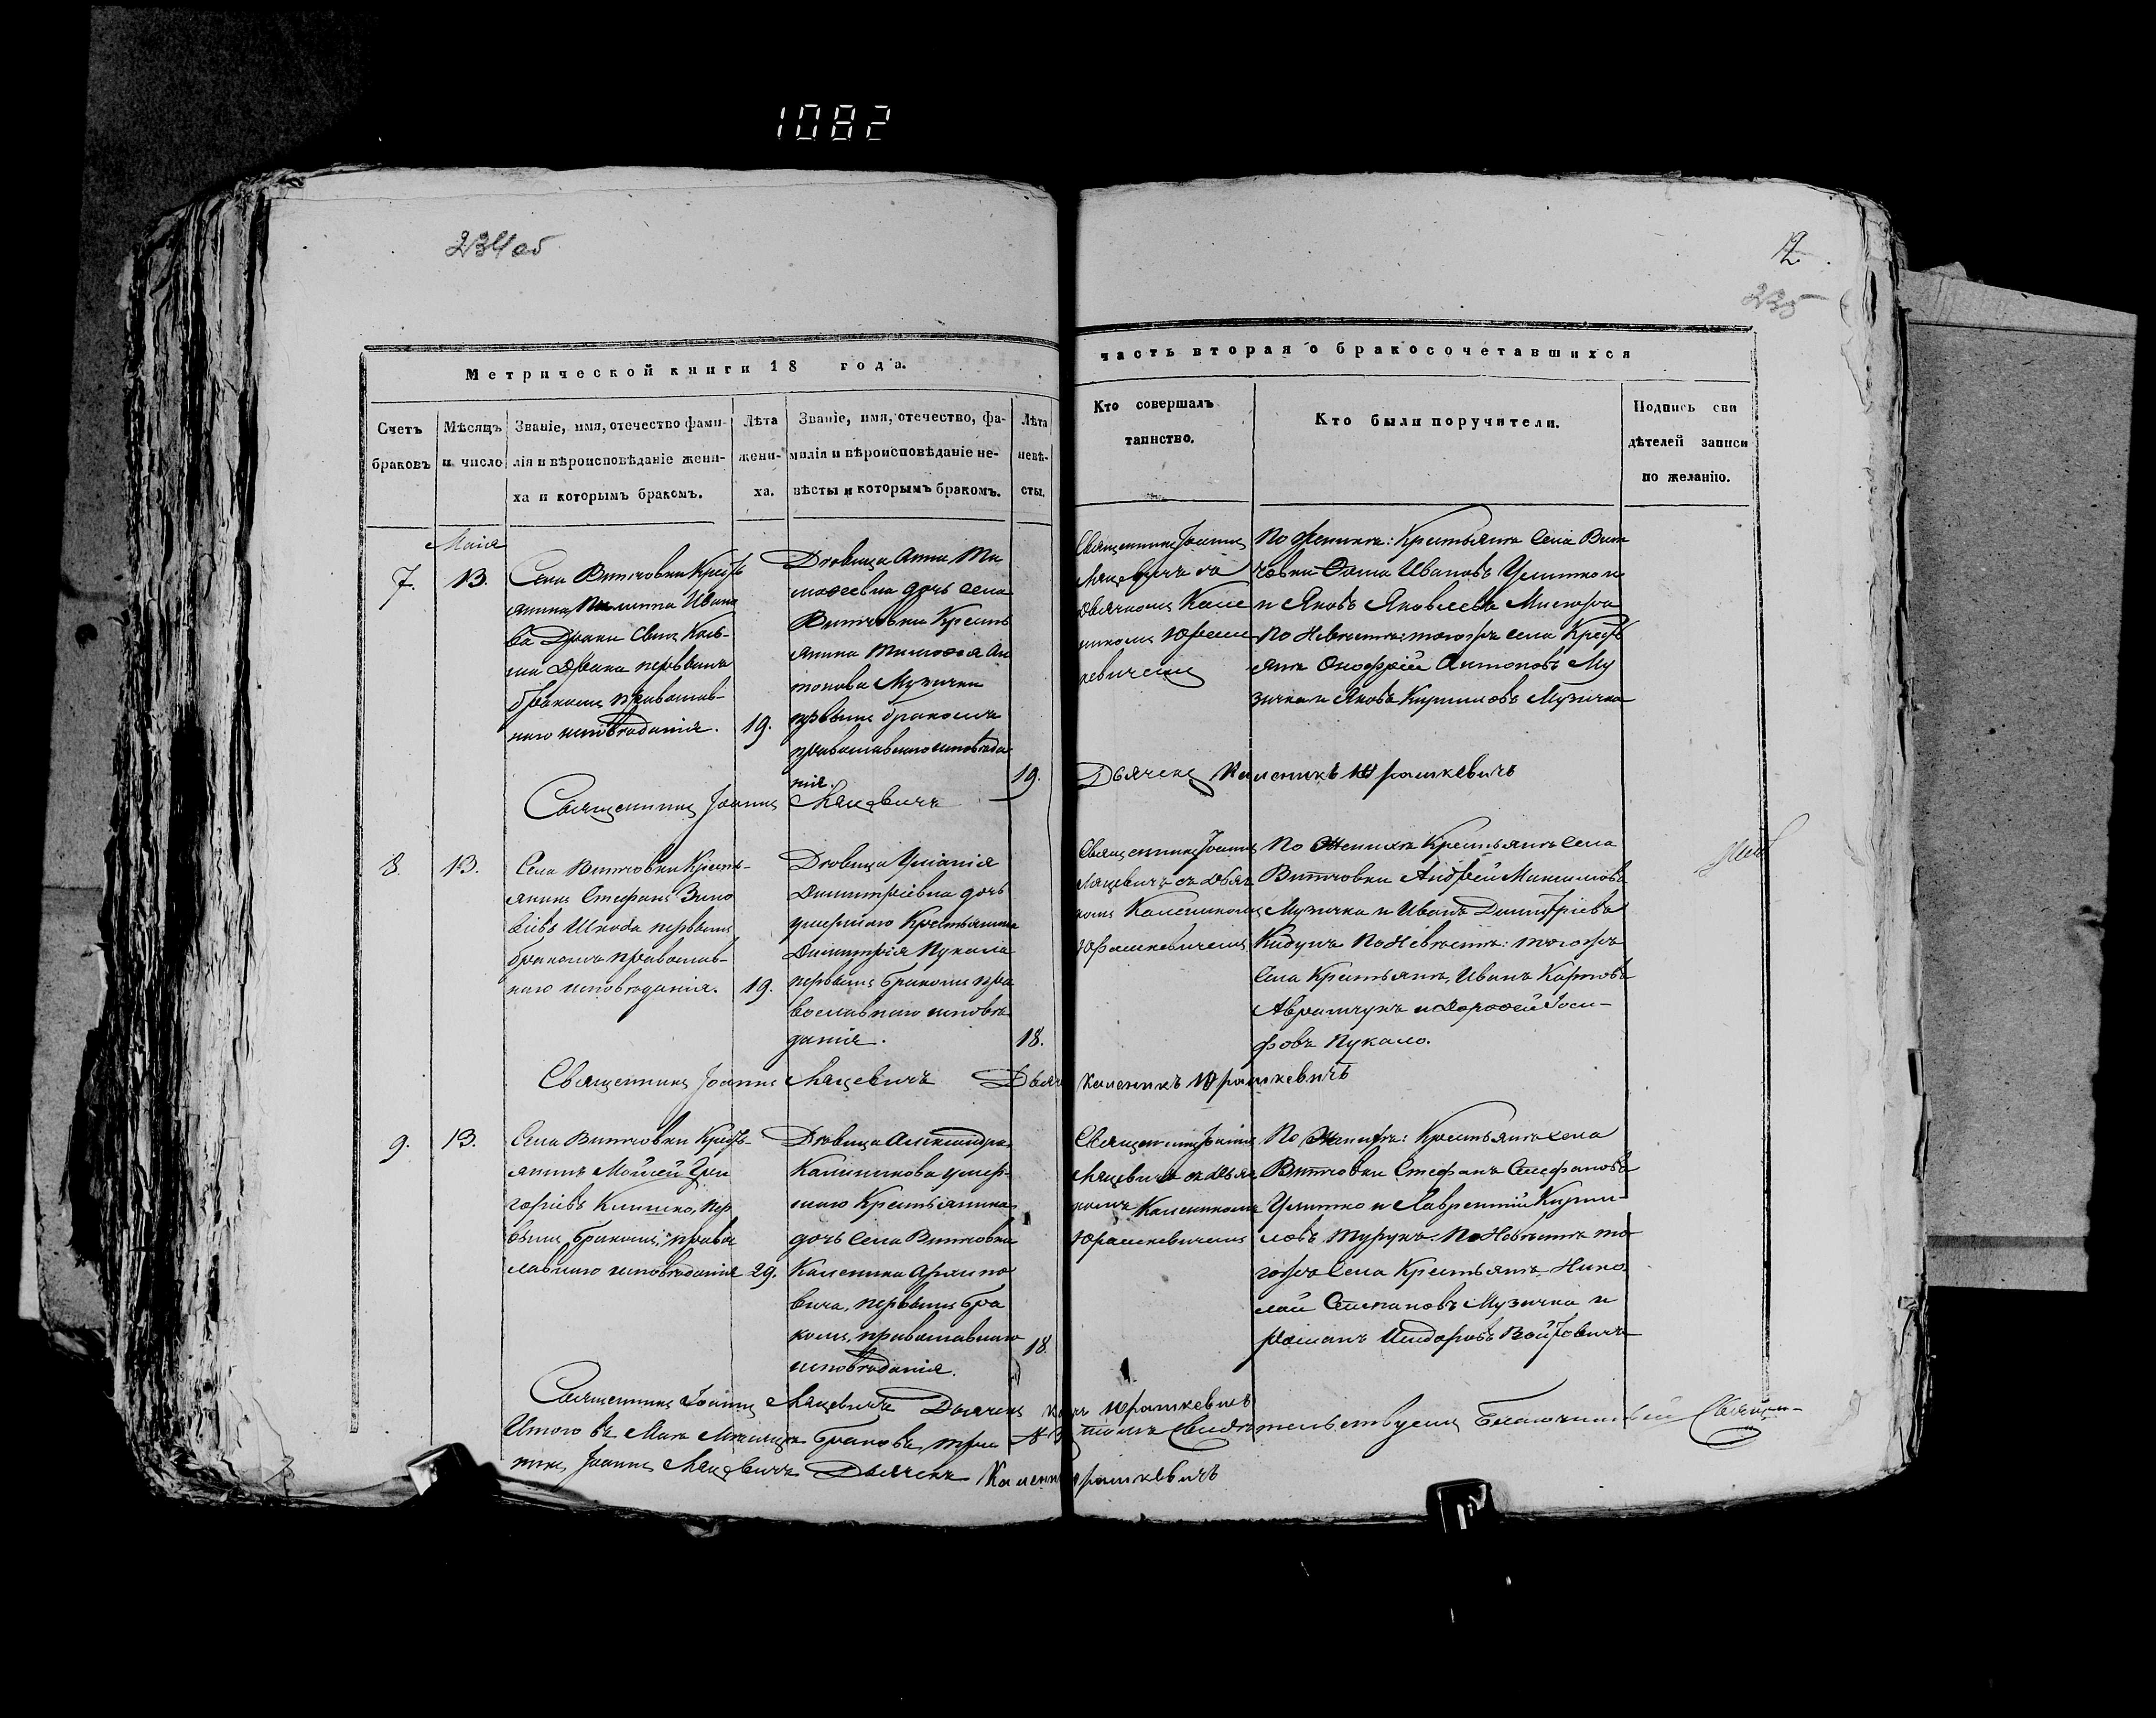 1082
234 об
12
235
Метрической книги 18 года.
часть вторая о бракосочетавшихся
Счетъ браковъ
Мѣсяцъ и число
Званіе, имя, отечество фами-
лія и вѣроисповѣданіе жени-
ха и которымъ бракомъ.
Лѣта
жени-
ха.
Званіе, имя, отечество, фа-
милія и вѣроисповѣданіе не-
вѣсты и которымъ бракомъ.
Лѣта
невѣ-
сты.
Кто совершалъ
таинство.
Кто были поручители.
Подпись сви
дѣтелей записи
по желанію.
Маія
7.
13.
Села Витчовки Кресть
янинъ Ивано
въ
первымъ
бракомъ православ-
наго исповѣданія.
19.
Дѣвица Анна Ти
моѳеевна дочь села
Витчовки Кресть
янина Тимоѳея Ан
тонова Музычки
первымъ бракомъ
православнаго исповѣда
нія.
19.
Священникъ Іоаннъ
Мацевичъ съ
Дьячкомъ Кале
никомъ Юраш
кевичемъ
По Женихѣ: Крестьяне села Вит
човки Ѳома Ивановъ Улитко и
и Яковъ Яковлевъ
По Невѣстѣ: тогожъ села Кресть
яне Онофрій Антоновъ Му
зычка и Яковъ Кирилловъ Музычка
Священникъ Іоаннъ Мацевичъ
Дьячекъ Каленикъ Юрашкевичъ
8.
13.
Села Витчовки Кресть-
янинъ Стефанъ Зино
віевъ Шкода первымъ
бракомъ православ-
наго исповѣданія.
19.
Дѣвица Уліанія
Димитріевна дочь
умершаго Крестьянина
Димитрія Пукала
первымъ бракомъ пра
вославнаго исповѣ
данія.
18.
Священникъ Іоаннъ
Мацевичъ съ Дьяч
комъ Каленикомъ
Юрашкевичемъ
По Женихѣ Крестьяне села
Витчовки Андрей Максимовъ
Музычка и Иванъ Димитріевъ
По Невѣстѣ: тогожъ
Села Крестьяне, Иванъ Карповъ
Аврамчукъ и Дороѳей Іоси-
фовъ Пукало.
Священникъ Іоаннъ Мацевичъ Дьяч Каленикъ Юрашкевичъ
9.
13.
Села Витчовки Кресть-
янинъ Мойсей Гри
горіевъ Климко, пер
вымъ бракомъ, правос
лавнаго исповѣданія
29.
Дѣвица Александра
Калиникова умер-
шаго Крестьянина
дочь села Витчовки
Каленика
первымъ бра
комъ, православнаго
исповѣданія.
18.
Священникъ Іоаннъ
Мацевичъ съ Дьяч
комъ Калеником
Юрашкевичемъ
По Женихѣ: Крестьяне села
Витчовки Стефанъ Стефановъ
Улитко и Лаврентій Кирил-
ловъ Турукъ. По Невѣстѣ то
гожъ Села Крестьяне, Нико
лай Степановъ Музычка и
Романъ Исидоровъ Войтовичъ
Священникъ Іоаннъ Мацевичъ Дьячекъ Юрашкевичъ
Итого въ Маѣ Мѣсяцѣ браковъ три въ томъ свидѣтельствуемъ Священ-
никъ Іоаннъ Мацевичъ Дьячекъ Каленик Юрашкевичъ